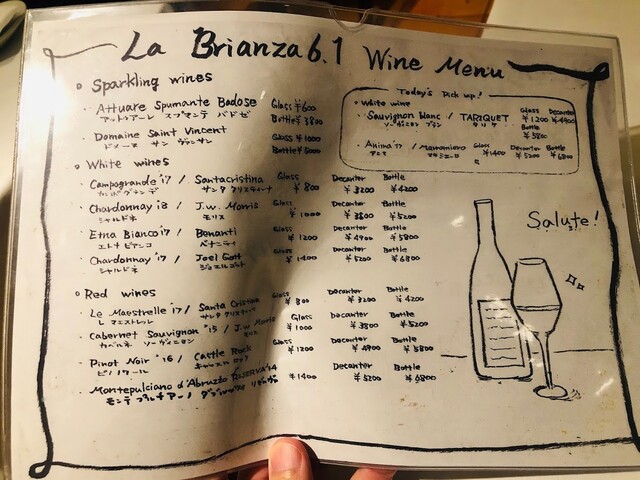 La Brianza 6.1 Wine Menu
Sparkling wines
Attuare Spumante Badose Glass ¥600
アットゥアーレ スプマンテ バドゼ Bottle ¥3800
Domaine Saint Vincent Glass ¥1000
ドメーヌ サン ヴァンサン Bottle ¥6000
Today's Pick up!
White wine
Sauvignon blanc / TARIQUET Glass ¥1200 Decanter ¥4900
ソーヴィニヨン ブラン タリケ Bottle ¥5800
Anima'17 / Marramiero Glass ¥1400 Decanter ¥5200 Bottle ¥6800
アニマ
White wines
Campogrande '17 / Santacristina Glass ¥800 Decanter ¥3200 Bottle ¥4200
カンポグランデ サンタ クリスティーナ
Chardonnay '18 / J.W. Morris Glass ¥1000 Decanter ¥3800 Bottle ¥5200
シャルドネ モリス
Etna Bianco '17 / Benanti Glass ¥1200 Decanter ¥4900 Bottle ¥5800
エトナ ビアンコ ベナンティ
Chardonnay '17 / Joel Gott Glass ¥1400 Decanter ¥5200 Bottle ¥6800
シャルドネ ジョエルゴット
Salute!
Red wines
Le Maestrelle '17 / Santa Cristina Glass ¥800 Decanter ¥3200 Bottle ¥4200
レ マエストレッレ サンタ クリスティーナ
Cabernet Sauvignon '15 / J.W. Morris Glass ¥1000 Decanter ¥3800 Bottle ¥5200
カベルネ ソーヴィニヨン モリス
Pinot Noir '16 / Castle Rock Glass ¥1200 Decanter ¥4900 Bottle ¥5800
ピノノワール キャッスル ロック
Montepulciano d'Abruzzo RISERVA '14 ¥1400 Decanter ¥5200 Bottle ¥6800
モンテプルチアーノ ダブルッツォ リゼルヴァ